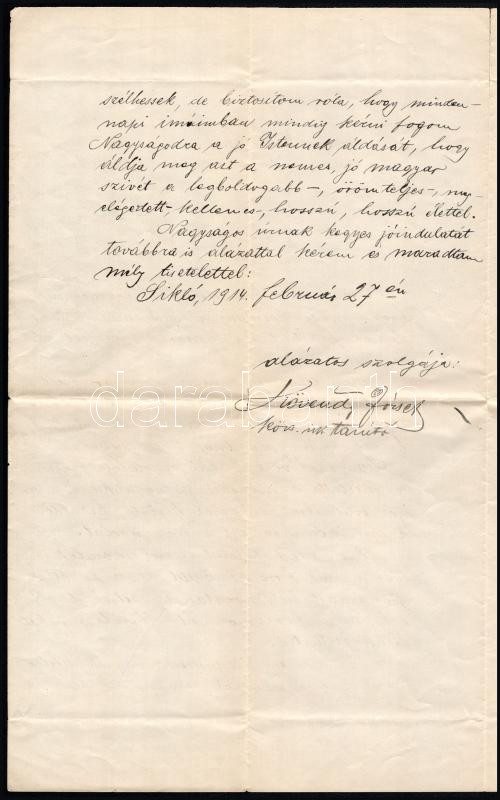 szélhessek, de biztosítom róla, hogy minden-
napi imáimban mindig kérni fogom
Nagyságodra a jó Istennek áldását, hogy
áldja meg azt a nemes, jó magyar
szivét a legboldogabb-, örömteljes-, meg-
elégedett-, kellemes, hosszú, hosszú élettel.
Nagyságos úrnak kegyes jóindulatát
továbbra is alázattal kérem és maradtam
mély tisztelettel:
Sikló, 1914. február 27 én
alázatos szolgája:
József
tanító
darabanth